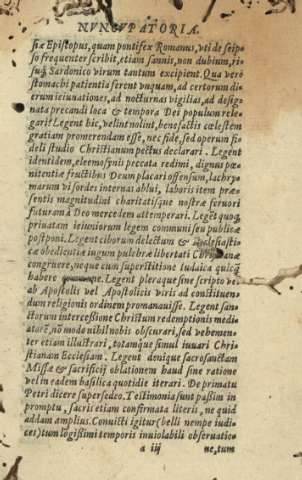 NVNCVPATORIA.
siæ Episcopus, quam pontifex Romanus, vti de seip
so frequenter scribit, etiam sannis, non dubium, ri
su Sardonico virum tantum excipient. Qua verò
stomachi patientia ferent vnquam, ad certorum di
erum ieiunationes, ad nocturnas vigilias, ad desig
nata precandi loca & tempora Dei populum rele-
gari? Legent hic, velint nolint, benefactis cœlestem
gratiam promerendam esse, nec fide, sed operum fi
deli studio Christianum pectus declarari. Legent
identidem, eleemosynis peccata redimi, dignus pœ
nitentiæ fructibus Deum placari offensum, lachry
marum vi sordes internas ablui, laboris item præ
sentis magnitudini charitatisque nostræ feruori
futuram à Deo mercedem attemperari. Leget quoq
priuatam ieiuniorum legem communi seu publicæ
postponi. Legent ciborum delectum & Ecclesiastio
cæ obedientiæ iugum pulchræ libertati Christianæ
congruere, neque cum superstitione Iudaica quicq
habere Legent pleraque sine scripto ve-
ab Apostolis vel Apostolicis viris ad constituen-
dum religionis ordinem promanauisse. Legent san-
ctorum intercessione Christum redemptionis media
torē, nō modo nihil nobis obscurari, sed vehemen-
ter etiam illustrari, totamque simul iuuari Chris
tianam Ecclesiam. Legent denique sacrosanctam
Missæ & sacrificij oblationem haud sine ratione
vel in eadem basilica quotidie iterari. De primatu
Petri dicere supersedeo. Testimonia sunt passim in
promptu, sacris etiam confirmata literis, ne quid
addam amplius. Conuicti igitur (belli nempe iudi
ces) tum longissimi temporis inuiolabili obseruatio
a iij ne, tum